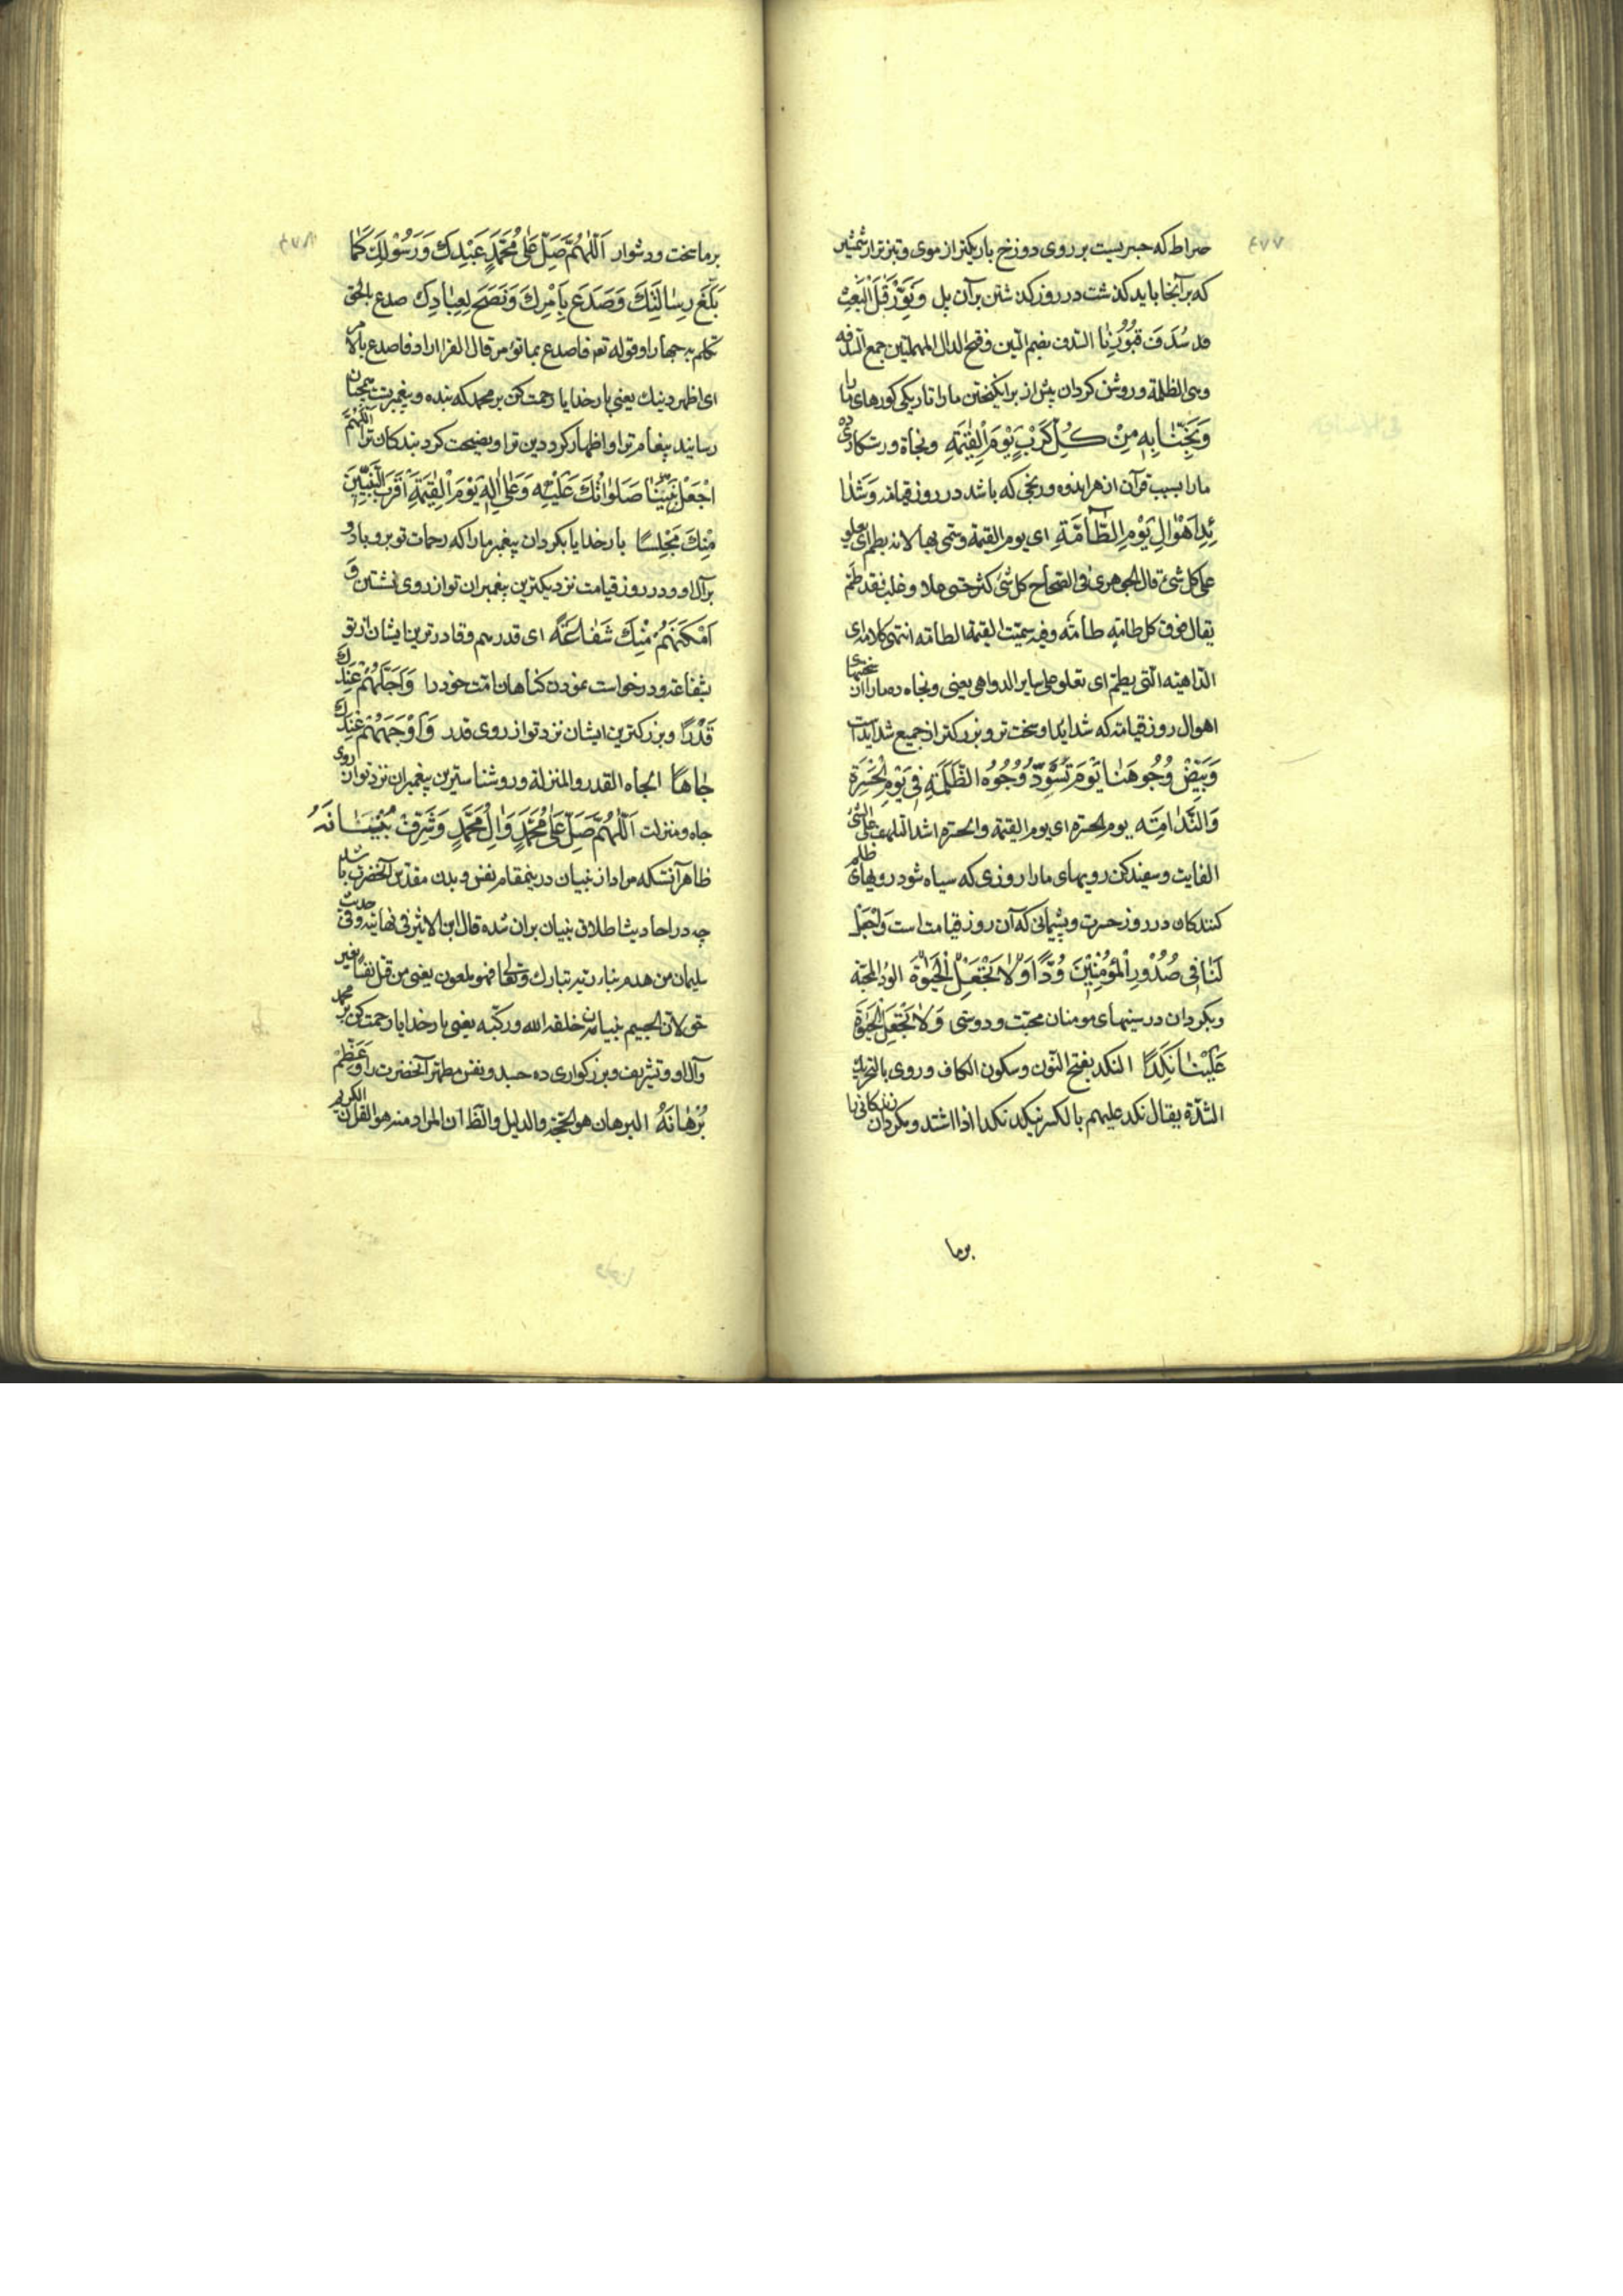 ٤٧٧
صراط که جسریست بر روی دوزخ باریکتر از موی و تیزتر از شمشیر
که بر آنجا باید کذشت در روز کذشتن بر آن پل وَنَوِّرْ قَبْلَ الْبَعْثِ
سُدَفَ قُبُورِنَا السدف بضم السین و فتح الدال المهملتین جمع السدفه
وهی الظلمة و روشن کردان پیش از برانکیختن ما را تاریکی کورهای ما
وَنَجِّنَا بِهِ مِنْ كُلِّ كَرْبٍ يَوْمَ الْقِيٰمَةِ و نجاة و رستکاری ده
ما را بسبب قرآن از هر اندوه و رنجی که باشد در روز قیامة وَشَدَا
ئِدِ اَهْوَالِ يَوْمِ الطَّآمَّةِ ای یوم القیمة وسمی بها لانه یطم ای یعلو
علی کل شیء قال الجوهری فی الصحاح کل شیء کثر حتی علا وغلب فقد طم
یقال فوق کل طامةٍ طامّة وفیه سمیّت القیمة الطامه انتهی کلامه ای
الداهیه التی یطم ای تعلو علی سایر الدواهی یعنی و نجاه ده ما را از سختیهای
اهوال روز قیامة که شداید او سخت تر و بزرکتر از جمیع شدایدست
وَبَيِّضْ وُجُوهَنَا يَوْمَ تَسْوَدُّ وُجُوهُ الظَّلَمَةِ فِي يَوْمِ الْحَسْرَةِ
وَالنَّدَامَةِ یوم الحسرة ای یوم القیمة والحسرة اشد التلهف علی الشیء
الفایت و سفید کن رویهای ما را روزی که سیاه شود رویهای ظلم
کنندکان در روز حسرت و پشیمانی که آن روز قیامت است وَاجْعَلْ
لَنَا فِي صُدُورِ الْمُؤْمِنِينَ وُدًّا وَلَا تَجْعَلِ الْحَيٰوةَ الود المحبّة
و بکردان در سینهای مومنان محبّت و دوستی وَلَا تَجْعَلِ الْحَيٰوةَ
عَلَيْنَا نَكَدًا النکد بفتح النون وسکون الکاف وروی بالتحریک
الشدّة یقال نکد علیهم بالکسر ینکد نکدا اذا اشتد و مکردان زندکانی را
برما
٤٧٨
بر ما سخت و دشوار اَللّٰهُمَّ صَلِّ عَلٰى مُحَمَّدٍ عَبْدِكَ وَرَسُولِكَ كَمَا
بَلَّغَ رِسَالَتَكَ وَصَدَعَ بِاَمْرِكَ وَنَصَحَ لِعِبَادِكَ صدع بالحق
تکلم به جهارا وقوله تع فاصدع بما تؤمر قال الفرا اراد فاصدع بالامر
ای اظهر دینك یعنی بار خدایا رحمت کن بر محمد که بنده و پیغمبر تست همچنان
رسانید پیغام ترا و اظهار کرد دین ترا و نصیحت کرد بندکان ترا اَللّٰهُمَّ
اجْعَلْ نَبِيَّنَا صَلَوٰاتُكَ عَلَيْهِ وَعَلٰى اٰلِهِ يَوْمَ الْقِيٰمَةِ اَقْرَبَ النَّبِيِّينَ
مِنْكَ مَجْلِسًا بار خدایا بکردان پیغمبر ما را که رحمات تو برو باد و
بر آل او در روز قیامت نزدیکترین پیغمبران تو از روی نشستن وَ
اَمْكَنَهُمْ مِنْكَ شَفَاعَةً ای قدرهم و قادرترین ایشان از تو
بشفاعة و درخواست نمودن کناهان امت خود را وَاَجَلَّهُمْ عِنْدَكَ
قَدْرًا و بزرکترین ایشان نزد تو از روی قدر وَاَوْجَهَهُمْ عِنْدَكَ
جَاهًا الجاه القدر والمنزلة و روشناسترین پیغمبران نزد تو از روی
جاه و منزلت اَللّٰهُمَّ صَلِّ عَلٰى مُحَمَّدٍ وَاٰلِ مُحَمَّدٍ وَشَرِّفْ بُنْيَانَهُ
ظاهر آنستکه مراد از بنیان درینمقام نفس و بدن مقدس آنحضرت باشد
چه در احادیث اطلاق بنیان بر آن شده قال ابن الاثیر فی نهایته وفی حدیث
سلیمان من هدم بناء ربه تبارك وتعالی فهو ملعون یعنی من قتل نفسا بغیر
حق لان الجسم بنیان خلقه الله ورکبه یعنی بار خدایا رحمت کن بر محمد
و آل او و تشریف و بزرکواری ده جسد و نفس مطهر آنحضرت را وَعَظِّمْ
بُرْهَانَهُ البرهان هو الحجة والدلیل والظ ان المراد منه هو القرآن الکریم